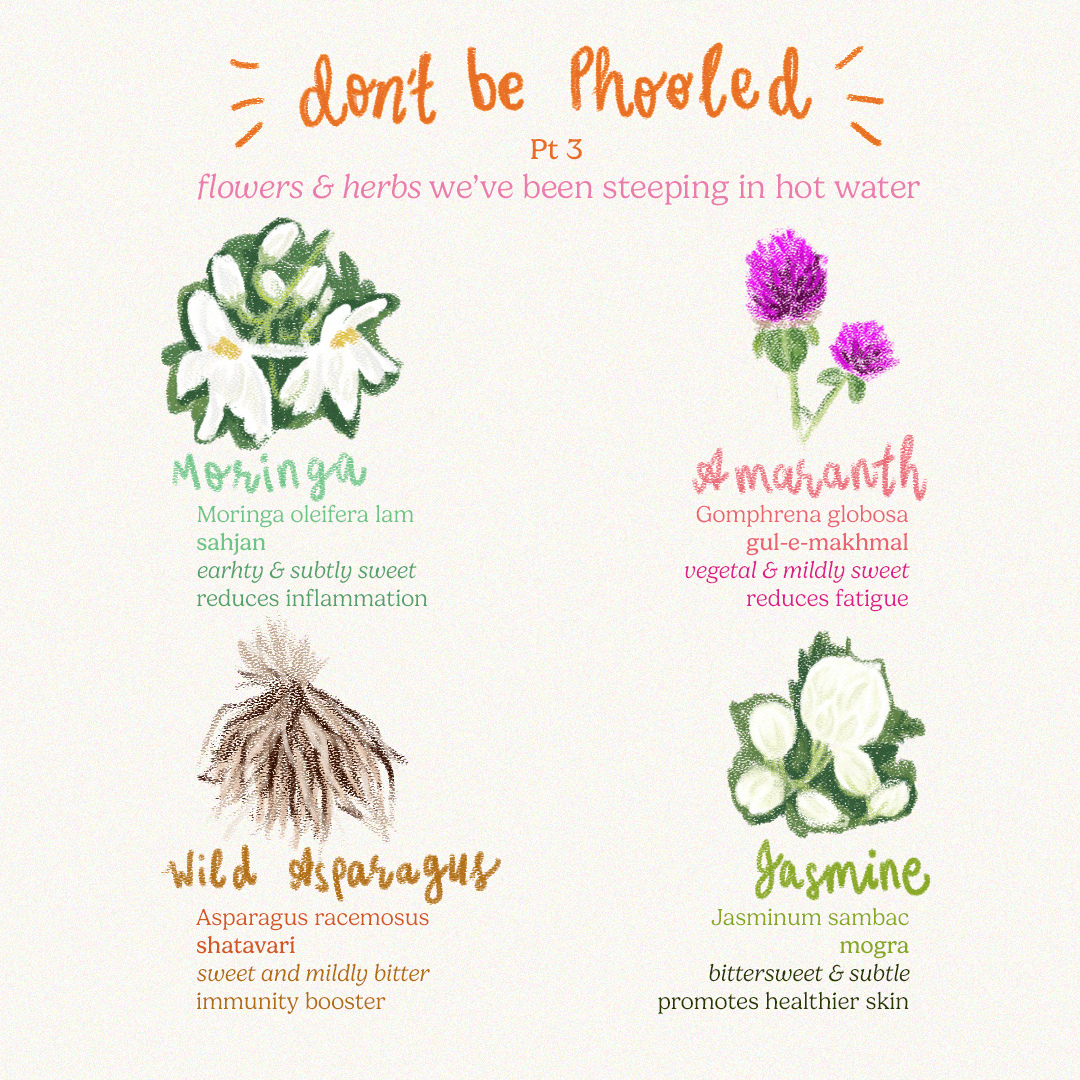 don't be Phooled
Pt 3
flowers & herbs we've been steeping in hot water
Moringa
Moringa oleifera lam
sahjan
earhty & subtly sweet
reduces inflammation
Amaranth
Gomphrena globosa
gul-e-makhmal
vegetal & mildly sweet
reduces fatigue
Wild Asparagus
Asparagus racemosus
shatavari
sweet and mildly bitter
immunity booster
Jasmine
Jasminum sambac
mogra
bittersweet & subtle
promotes healthier skin